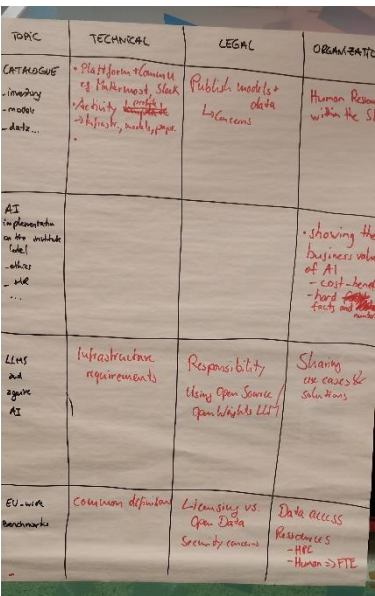 TOPIC
TECHNICAL
LEGAL
ORGANIZATIO
CATALOGUE
- inventory
- models
- data...
• Plattform + Commun
eg Mattermost, Slack
• Activity profile
→ Infrastr., models, proper.
•
Publish models +
data
↳ Concerns
Human Resou
within the S
AI
implementation
on the institute
level
- ethics
- HR
...
• showing the
business valu
of AI
- cost-bene
- hard
facts and
number
LLMS
and
agentic
AI
Infrastructure
requirements
Responsibility
Using Open Source /
Open Weights LLM
Sharing
use cases &
solutions
EU-wide
Benchmarks
-
Common definitions
Licensing vs.
Open Data
Security concerns
Data access
Resources
- HPC
- Human => FTE